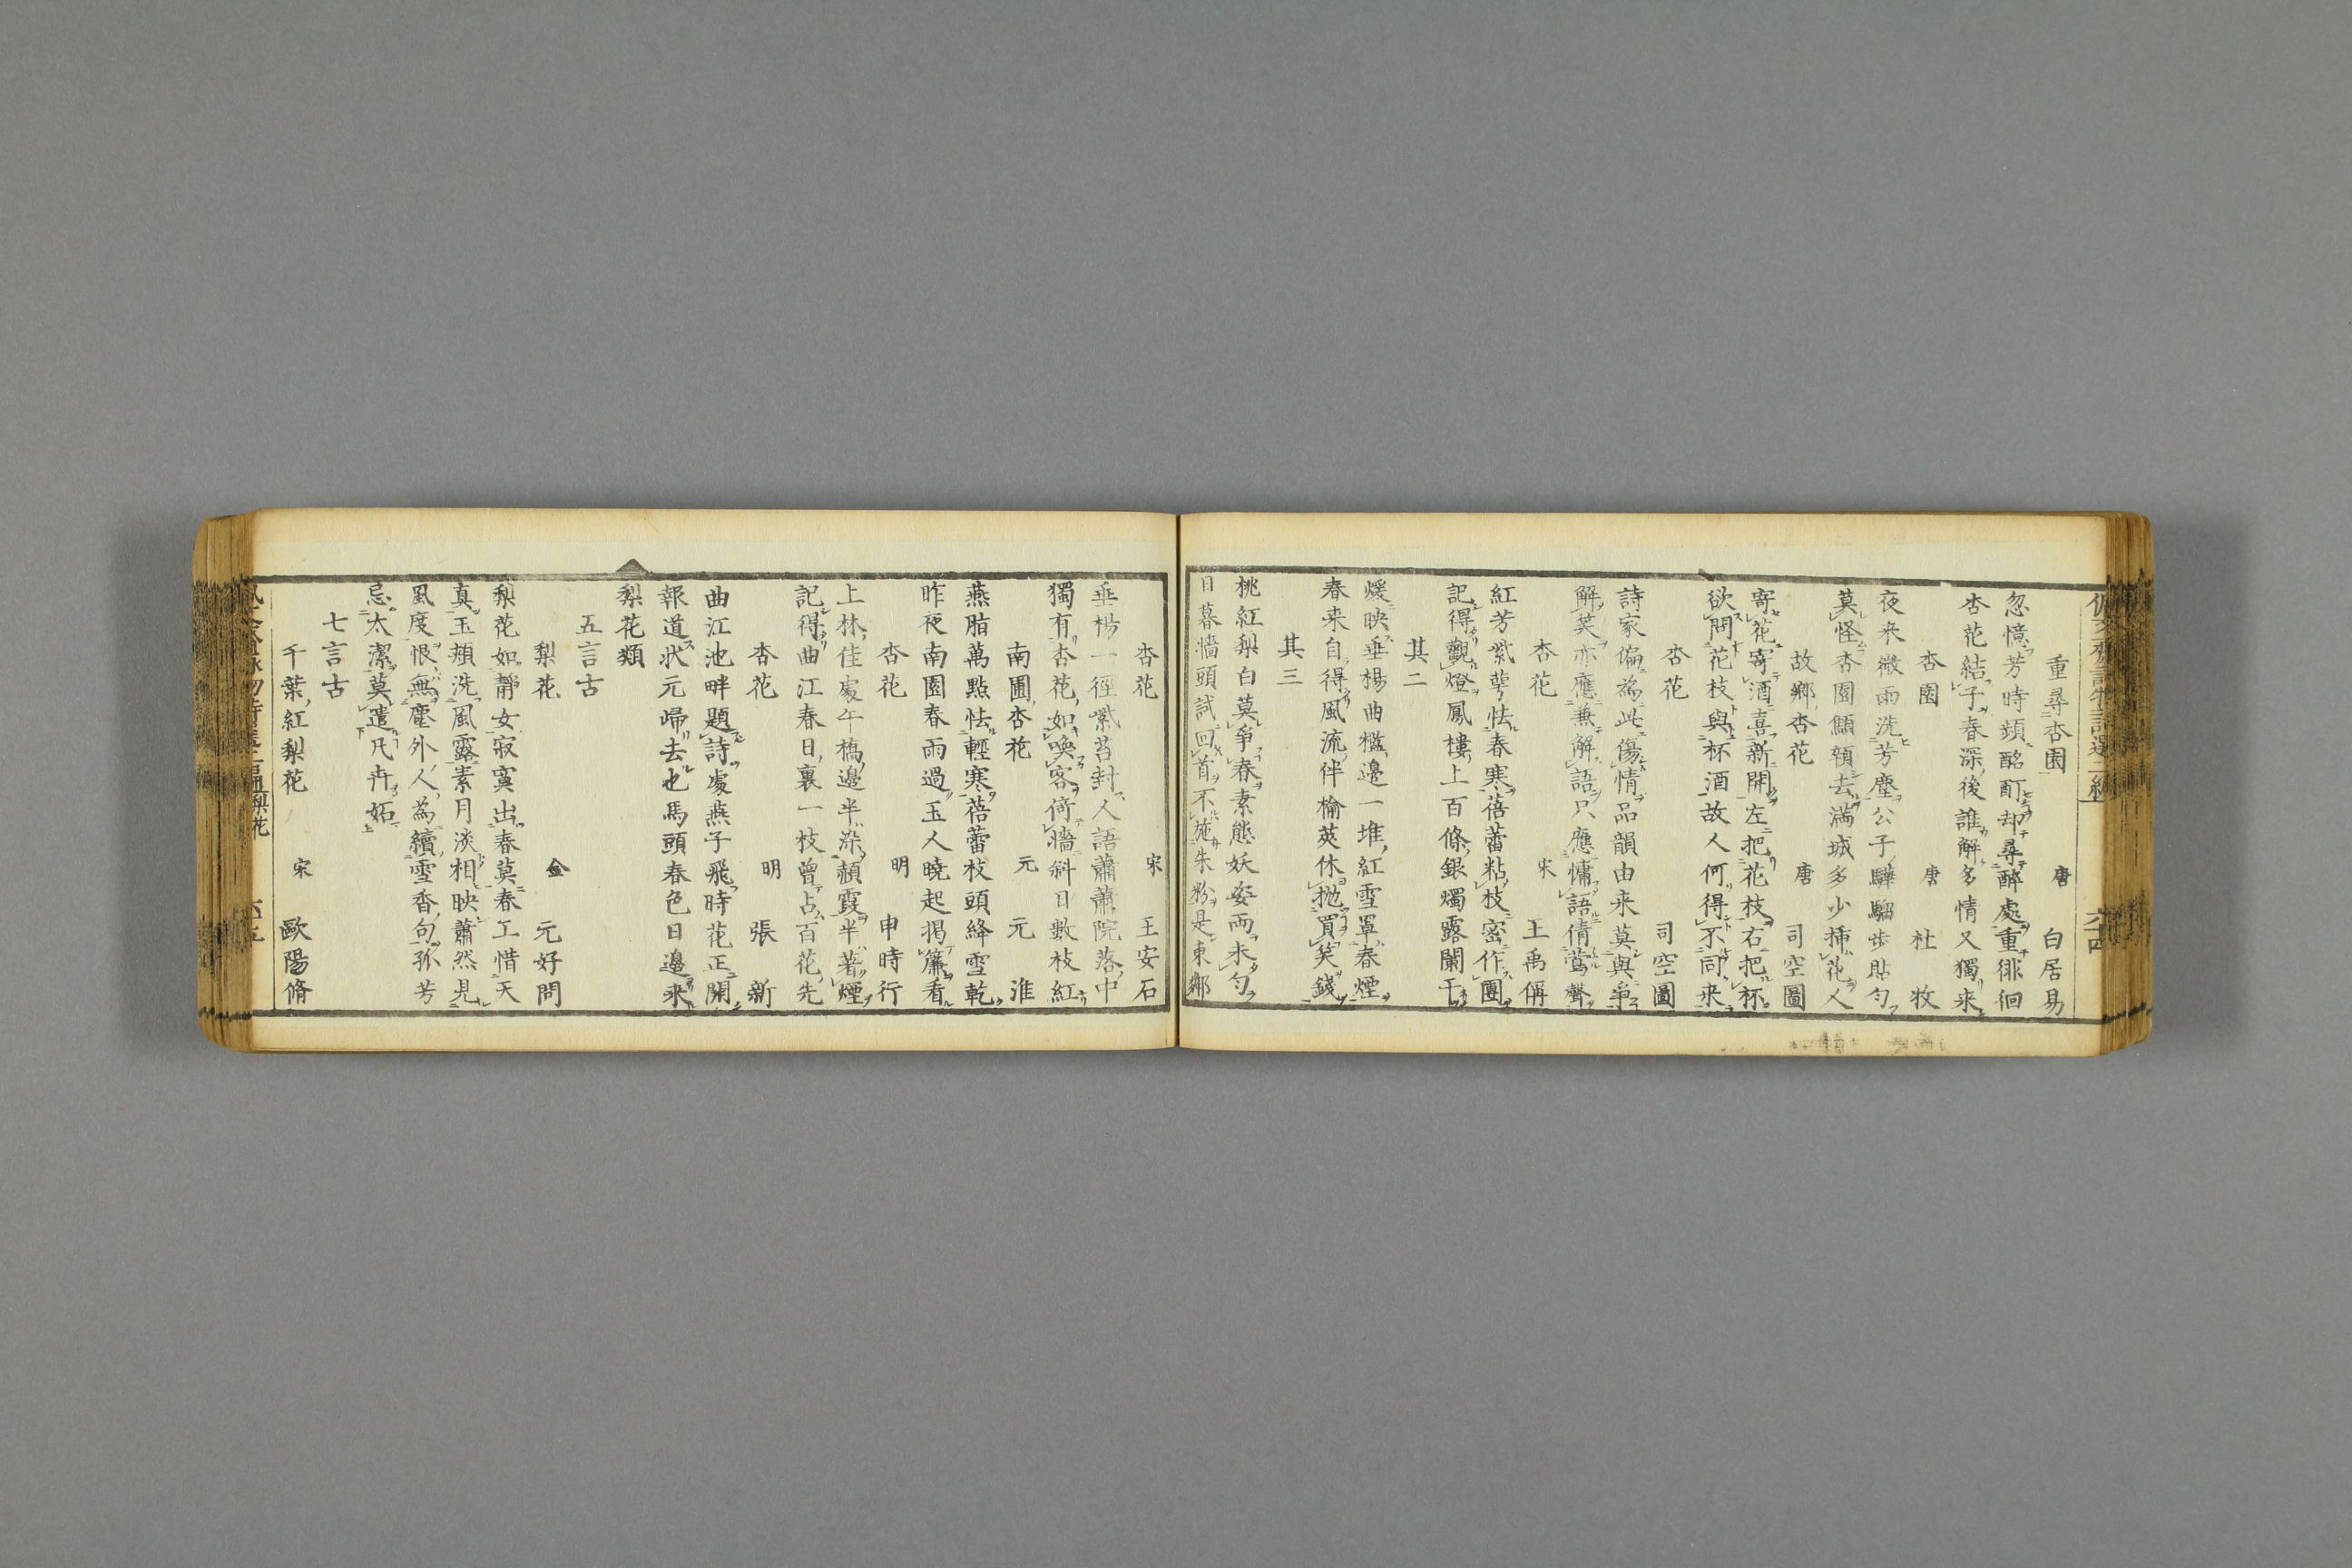 重尋杏園 唐 白居易
忽憶芳時頻酩酊却尋醉處重徘徊
杏花結子春深後誰解多情又獨來
杏園 唐 杜牧
夜来微雨洗芳塵公子驊騮歩貼勻
莫怪杏園顦顇去滿城多少挿花人
故鄉杏花 唐 司空圖
寄花寄酒喜新開左把花枝右把杯
欲問花枝與杯酒故人何得不同来
杏花 司空圖
詩家偏為此傷情品韻由来莫與爭
解笑亦應兼解語只應慵語倩鶯聲
杏花 宋 王禹偁
紅芳紫萼怯春寒蓓蕾粘枝密作團
記得觀燈鳳樓上百條銀燭露闌干
其二
煖映垂楊曲檻邊一堆紅雪罩春煙
春来自得風流伴榆莢休抛買笑錢
其三
桃紅梨白莫爭春素態妖姿両未勻
日暮墻頭試回首不施朱粉是東鄰
杏花 宋 王安石
垂楊一徑紫苔封人語蕭蕭院落中
獨有杏花如喚客倚墻斜日數枝紅
南圃杏花 元 元淮
燕脂萬點怯輕寒蓓蕾枝頭絳雪乾
昨夜南園春雨過玉人曉起揭簾看
杏花 明 申時行
上林佳處午橋邊半染頳霞半著煙
記得曲江春日裏一枝曾占百花先
杏花 明 張新
曲江池畔題詩處燕子飛時花正開
報道状元歸去也馬頭春色日邊来
梨花類
五言古
梨花 金 元好問
梨花如靜女寂寞出春莫春工惜天
真玉頰洗風露素月淡相映蕭然見
風度恨無塵外人為續雪香句孤芳
忌太潔莫遣凡卉妬
七言古
千葉紅梨花 宋 歐陽脩
梨花